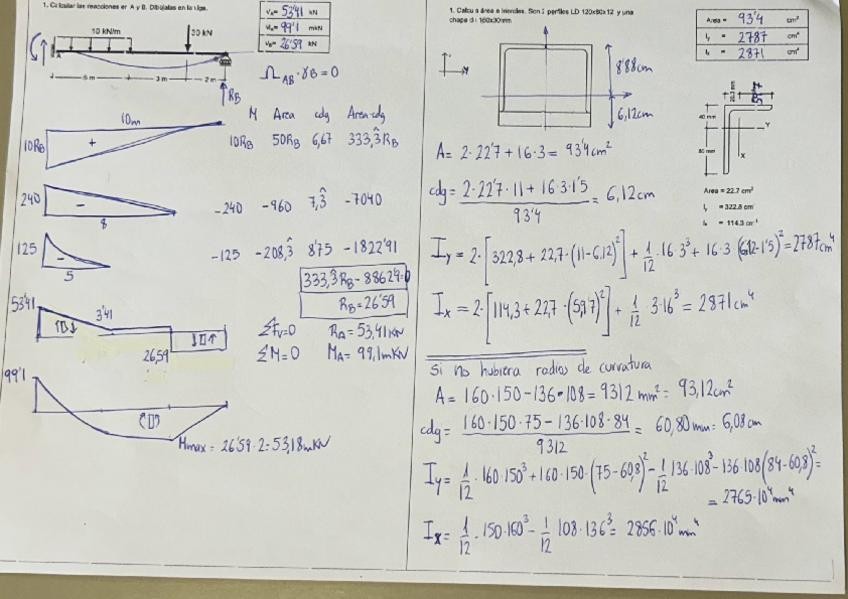 1. Calcular las reacciones en A y B. Dibújalas en la viga.
VA= 53'41 kN
MA= 99'1 mkN
VB= 26'59 kN
10 kN/m
30 kN
5 m 3 m 2 m
Ω AB · XB = 0
RB
10m
M Area cdg Area·cdg
10RB + 10RB 50RB 6,67 333,3̂RB
240 - -240 -960 7,3̂ -7040
8
125 - -125 -208,3̂ 8'75 -1822'91
5
333,3̂RB - 8862'9=0
RB = 26'59
53'41 3'41
26,59
ΣFv=0 RA = 53,41KN
ΣM=0 MA = 99,1mKN
99'1
Mmax = 26'59·2 = 53,18mKN
1. Calcula área e inercias. Son 2 perfiles LD 120x80x12 y una
chapa de 160x30mm
Area = 93'4 cm²
Iy = 2787 cm⁴
Ix = 2871 cm⁴
8'88cm
6,12cm
40 mm
80 mm
Y
X
Area = 22.7 cm²
Iy = 322.8 cm⁴
Ix = 114.3 cm⁴
A = 2·22'7 + 16·3 = 93'4cm²
cdg = 2·22'7·11 + 16·3·1'5 / 93'4 = 6,12cm
Iy = 2·[322,8 + 22,7·(11-6,12)²] + 1/12·16·3³ + 16·3·(6,12-1'5)² = 2787cm⁴
Ix = 2·[114,3 + 22,7·(5,97)²] + 1/12·3·16³ = 2871cm⁴
Si no hubiera radios de curvatura
A = 160·150 - 136·108 = 9312 mm² = 93,12cm²
cdg = 160·150·75 - 136·108·84 / 9312 = 60,80mm = 6,08cm
Iy = 1/12·160·150³ + 160·150·(75-60,8)² - 1/12·136·108³ - 136·108(84-60,8)² =
= 2765·10⁴mm⁴
Ix = 1/12·150·160³ - 1/12·108·136³ = 2856·10⁴mm⁴